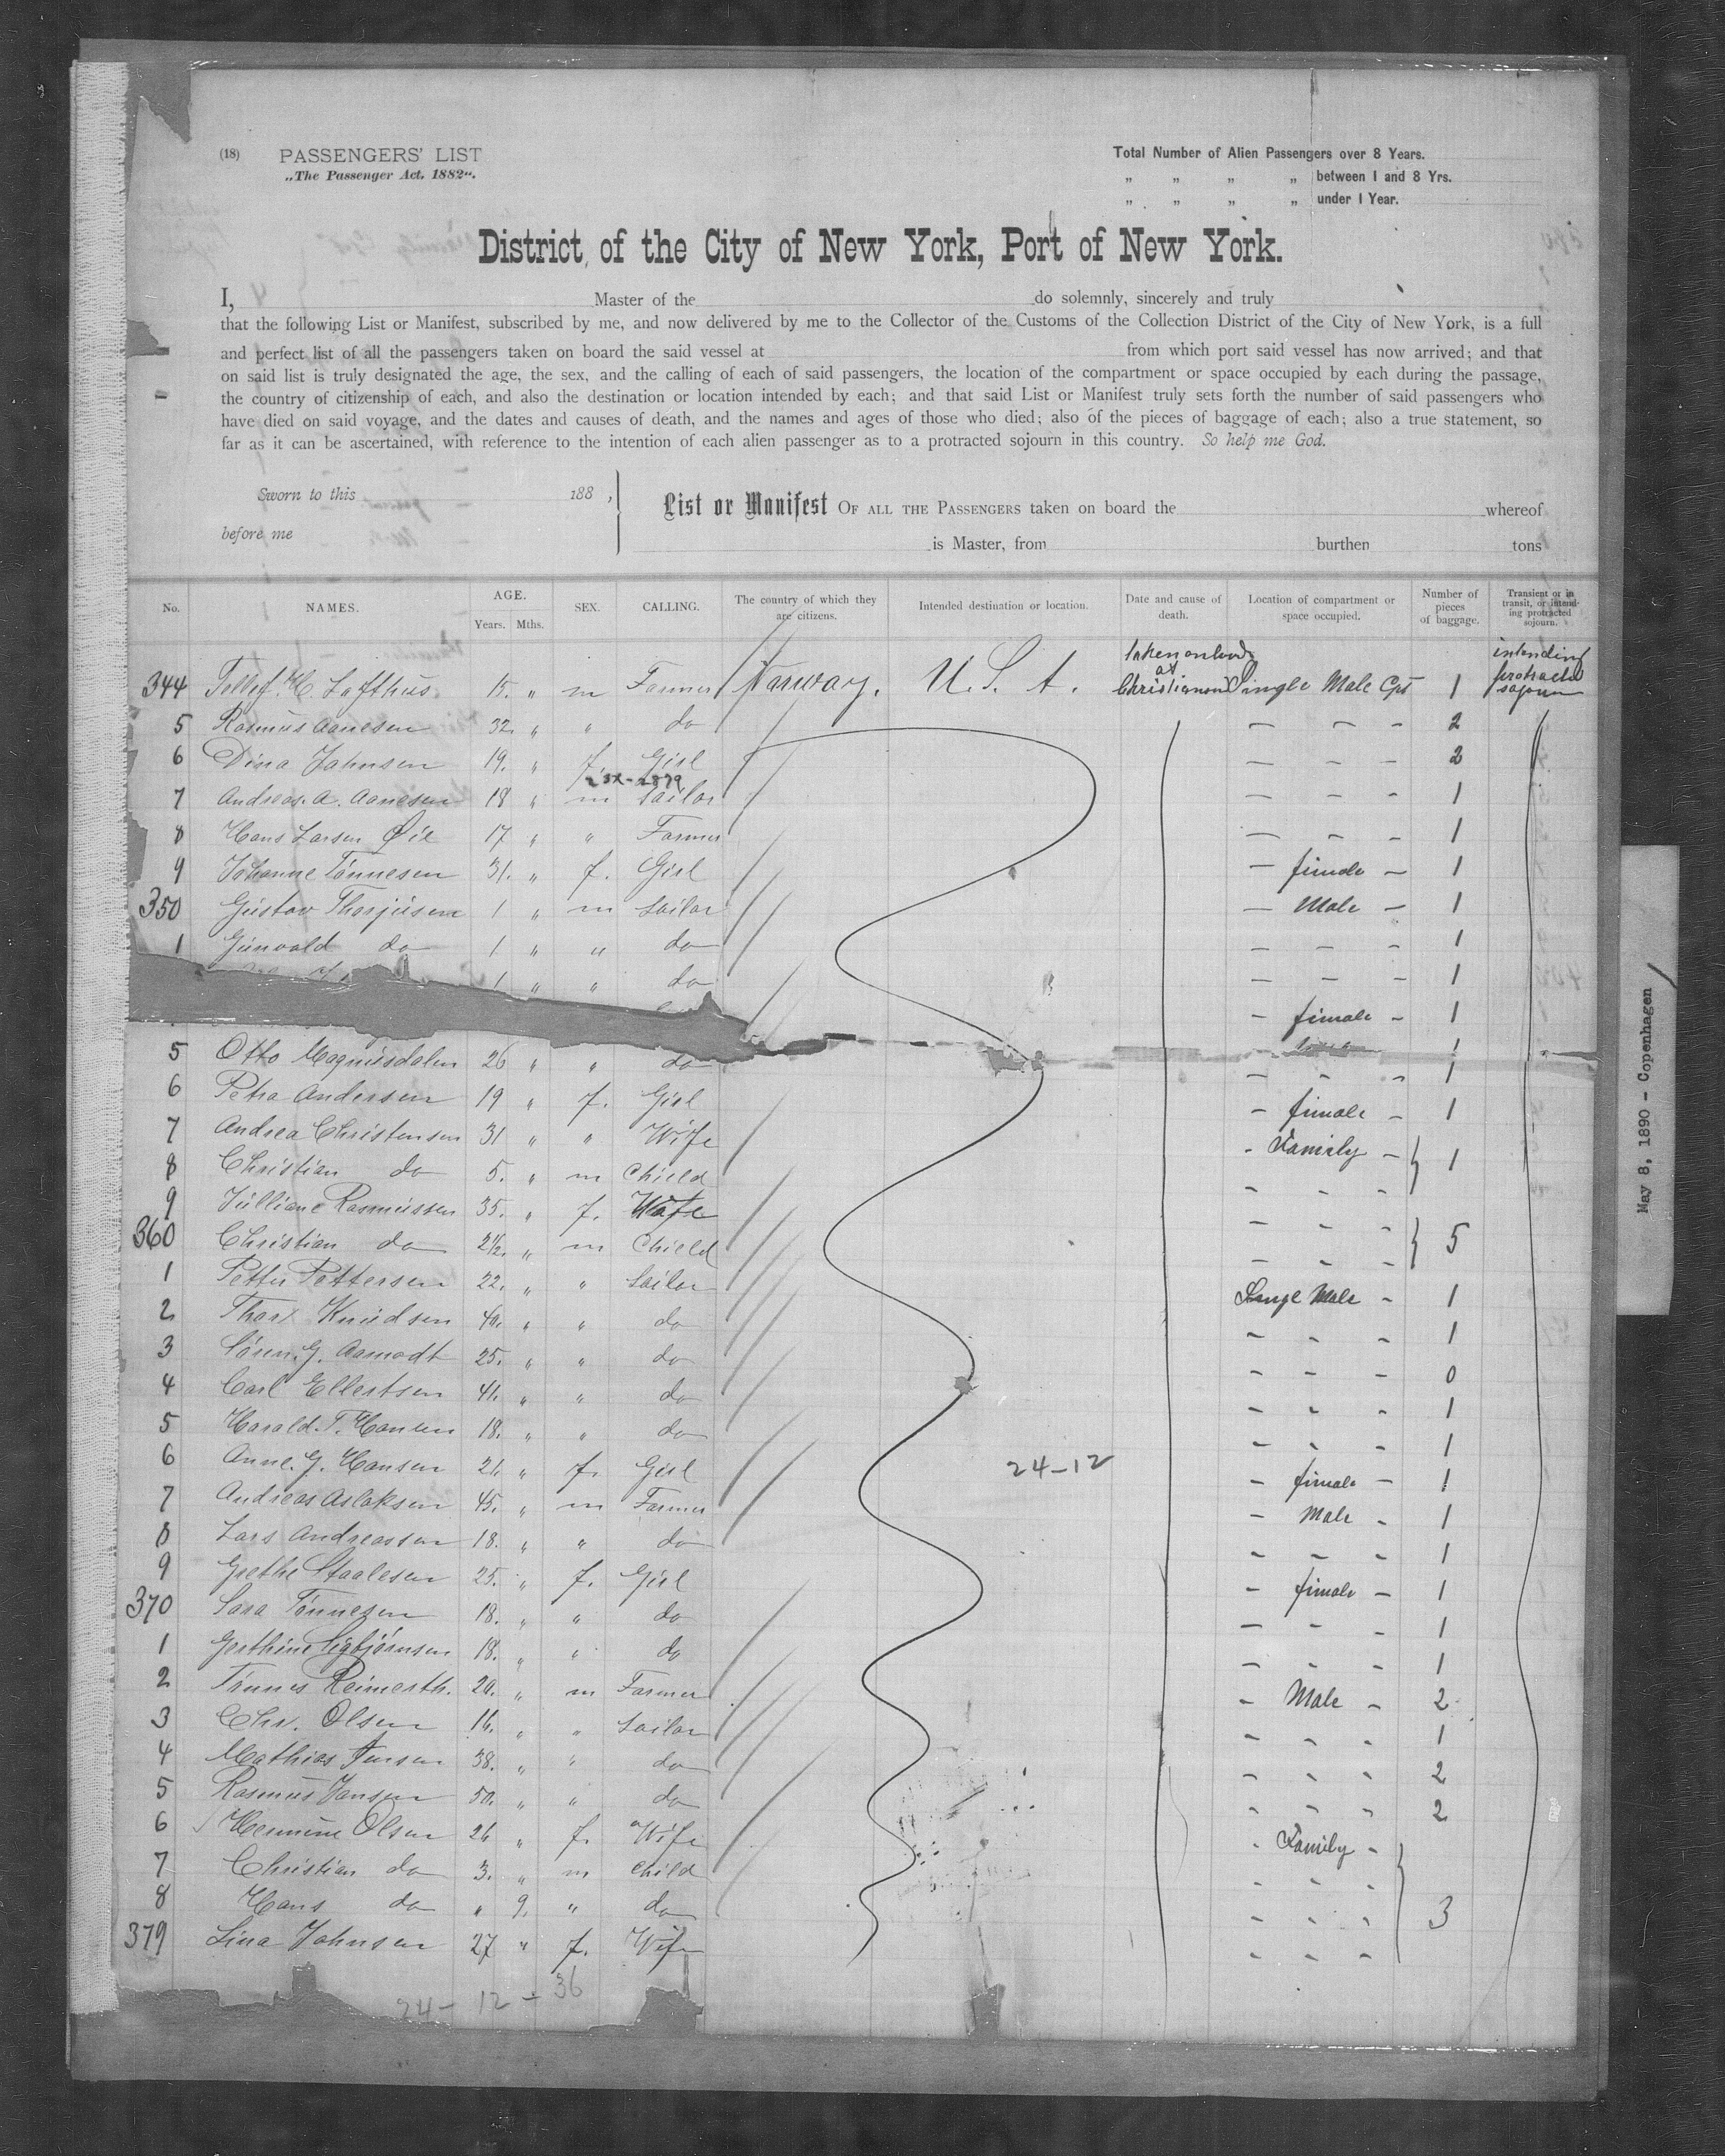 (18) PASSENGERS' LIST
„The Passenger Act, 1882“.
Total Number of Alien Passengers over 8 Years.
„ „ „ „ between 1 and 8 Yrs.
„ „ „ „ under 1 Year.
District of the City of New York, Port of New York.
I, Master of the do solemnly, sincerely and truly
that the following List or Manifest, subscribed by me, and now delivered by me to the Collector of the Customs of the Collection District of the City of New York, is a full
and perfect list of all the passengers taken on board the said vessel at from which port said vessel has now arrived; and that
on said list is truly designated the age, the sex, and the calling of each of said passengers, the location of the compartment or space occupied by each during the passage,
the country of citizenship of each, and also the destination or location intended by each; and that said List or Manifest truly sets forth the number of said passengers who
have died on said voyage, and the dates and causes of death, and the names and ages of those who died; also of the pieces of baggage of each; also a true statement, so
far as it can be ascertained, with reference to the intention of each alien passenger as to a protracted sojourn in this country. So help me God.
Sworn to this 188 ,
before me
List or Manifest OF ALL THE PASSENGERS taken on board the whereof
is Master, from burthen tons
No. NAMES. AGE. Years. Mths. SEX. CALLING. The country of which they are citizens. Intended destination or location. Date and cause of death. Location of compartment or space occupied. Number of pieces of baggage. Transient or in transit, or intending protracted sojourn.
344 Tellef. H. Lofthus 15. „ m Farmer Norway. U.S. A. taken onboard at Single Male Cpt 1 intending protracted sojourn
5 Rasmus Aanesen 32. „ „ do — — — 2
6 Dina Johnsen 19. „ f. Girl — — — 2
7 Andreas. A. Aanesen 18 „ m Sailor — — — 1
8 Hans Larsen 17 „ „ Farmer — — — 1
9 Johanne Tønnesen 31. „ f. Girl — female — 1
350 Gustav Thorjusen 1 „ m Sailor — Male — 1
1 Gunvald do 1. „ „ do — — — 1
1 „ „ do — — — 1
— female — 1
1
5 Otto Magnusdalen 26 „ „ do — — — 1
6 Petra Andersen 19 „ f. Girl — female — 1
7 Andrea Christensen 31 „ „ Wife - Family — 1
8 Christian do 5. „ m Chield - - -
9 Julliane Rasmussen 35. „ f. Wife - - - 5
360 Christian do 2½. „ m Chield - - -
1 Petter Pettersen 22. „ „ Sailor Single Male - 1
2 Thor Knudsen 40. „ „ do - - - 1
3 Søren. G. Aamodt 25. „ „ do - - - 0
4 Carl Ellertsen 41. „ „ do - - - 1
5 Harald. T. Hansen 18. „ „ do - - - 1
6 Anne. G. Hansen 21. „ f. Girl - female — 1
24-12
7 Andreas Aslaksen 45. „ m Farmer - Male - 1
8 Lars Andreassen 18. „ „ do - - - 1
9 Grethe Staalesen 25. „ f. Girl - female — 1
370 Sara Tønnesen 18. „ „ do - - - 1
1 Gerthine Sigbjørnsen 18. „ „ do - - - 1
2 Tønnes Reimerth. 20. „ m Farmer - Male - 2
3 Chr. Olsen 16. „ „ Sailor - - - 1
4 Mathias Jensen 38. „ „ do - - - 2
5 Rasmus Jansen 50. „ „ do - - - 2
6 Hermine Olsen 26 „ f. Wife - Family -
7 Christian do 3. „ m Child - - -
8 Hans do „ 9. „ do - - - 3
379 Lina Johnsen 27 „ f. Wife - - -
24 - 12 - 36
May 8, 1890 - Copenhagen